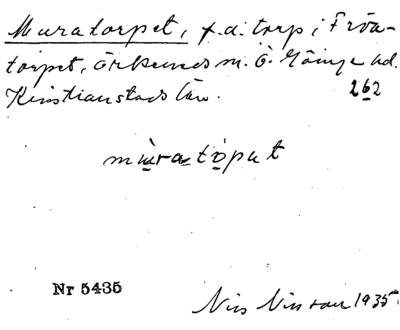 Muratorpet, f.d. torp i Fröa-
torpet, Örkeneds sn. Ö. Göinge hd.
Kristianstads län. 262
mùra-tòpat
Nr 5435
Nils Nilsson 1935.